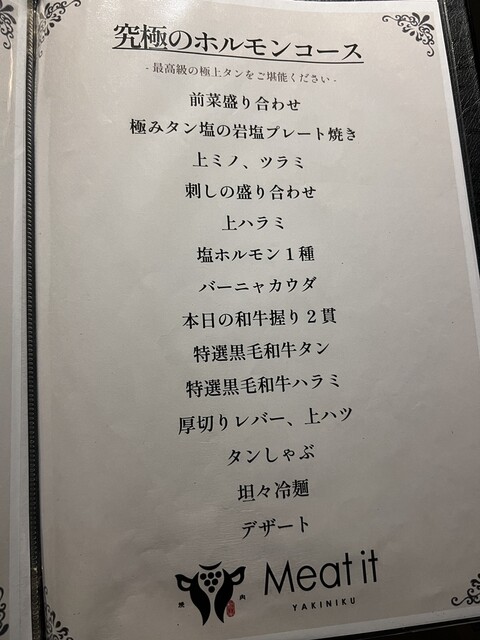 究極のホルモンコース
- 最高級の極上タンをご堪能ください -
前菜盛り合わせ
極みタン塩の岩塩プレート焼き
上ミノ、ツラミ
刺しの盛り合わせ
上ハラミ
塩ホルモン１種
バーニャカウダ
本日の和牛握り２貫
特選黒毛和牛タン
特選黒毛和牛ハラミ
厚切りレバー、上ハツ
タンしゃぶ
坦々冷麺
デザート
焼 肉
Meat it
YAKINIKU